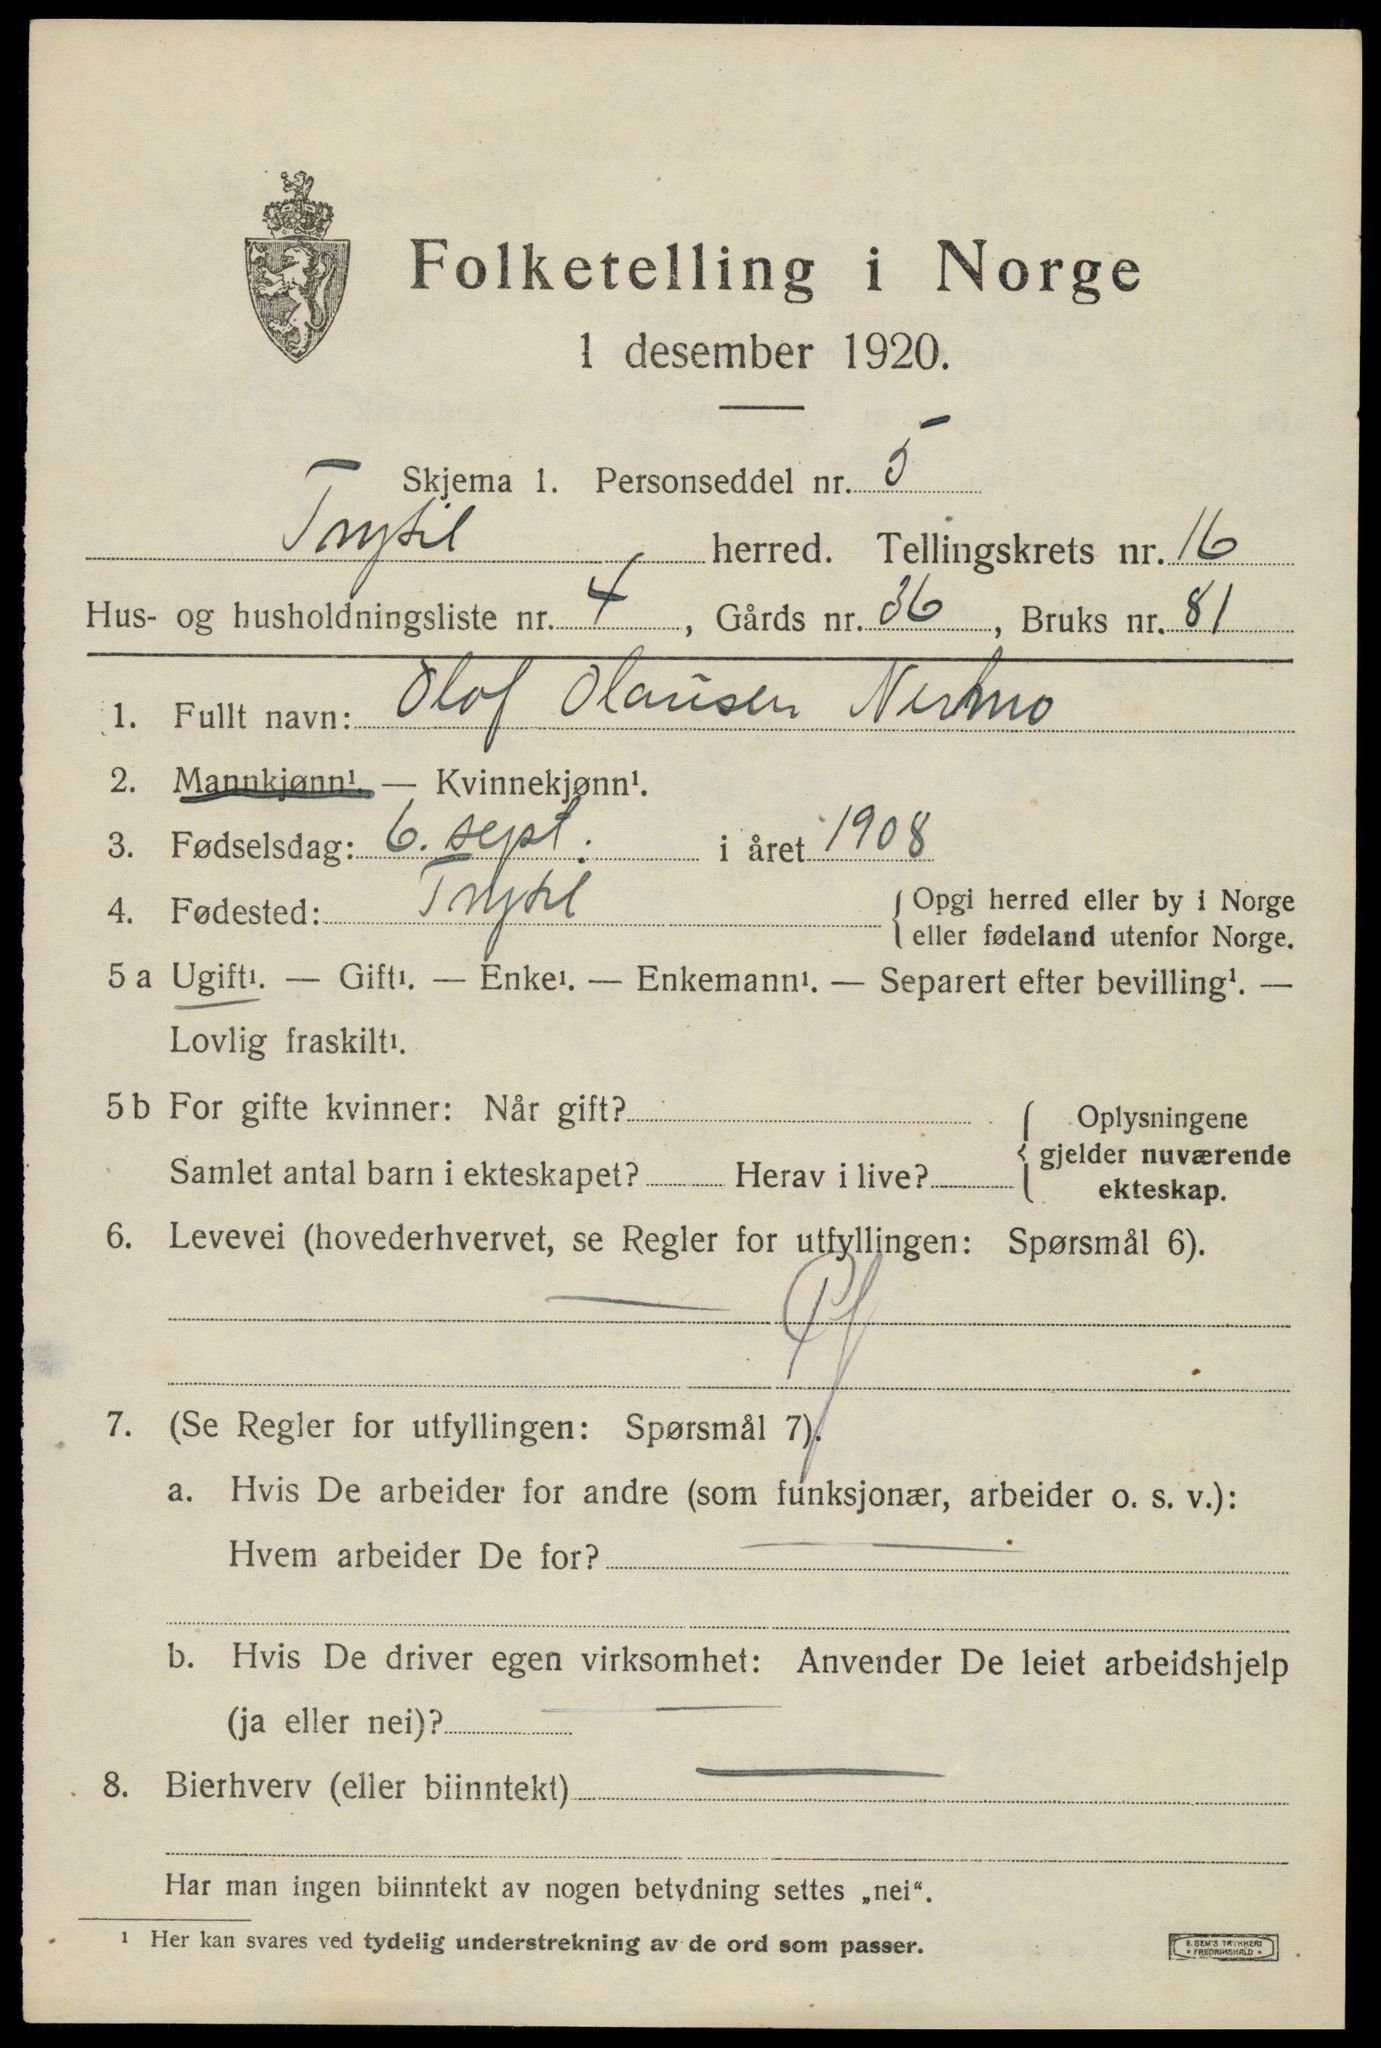 Folketelling i Norge
1 desember 1920.
Skjema 1. Personseddel nr. 5
Trysil herred. Tellingskrets nr. 16
Hus- og husholdningsliste nr. 4, Gårds nr. 36, Bruks nr. 81
1. Fullt navn: Olof Olausen Nermo
2. Mannkjønn¹. — Kvinnekjønn¹.
3. Fødselsdag: 6. sept. i året 1908
4. Fødested: Trysil { Opgi herred eller by i Norge
eller fødeland utenfor Norge.
5 a Ugift¹. — Gift¹. — Enke¹. — Enkemann¹. — Separert efter bevilling¹. —
Lovlig fraskilt¹.
5 b For gifte kvinner: Når gift? { Oplysningene
gjelder nuværende
Samlet antal barn i ekteskapet? Herav i live? ekteskap.
6. Levevei (hovederhvervet, se Regler for utfyllingen: Spørsmål 6).
— Pf
7. (Se Regler for utfyllingen: Spørsmål 7).
a. Hvis De arbeider for andre (som funksjonær, arbeider o. s. v.):
Hvem arbeider De for? —
b. Hvis De driver egen virksomhet: Anvender De leiet arbeidshjelp
(ja eller nei)? —
8. Bierhverv (eller biinntekt) —
Har man ingen biinntekt av nogen betydning settes „nei“.
¹ Her kan svares ved tydelig understrekning av de ord som passer.
E. SEM'S TRYKKERI
• FREDRIKSHALD •